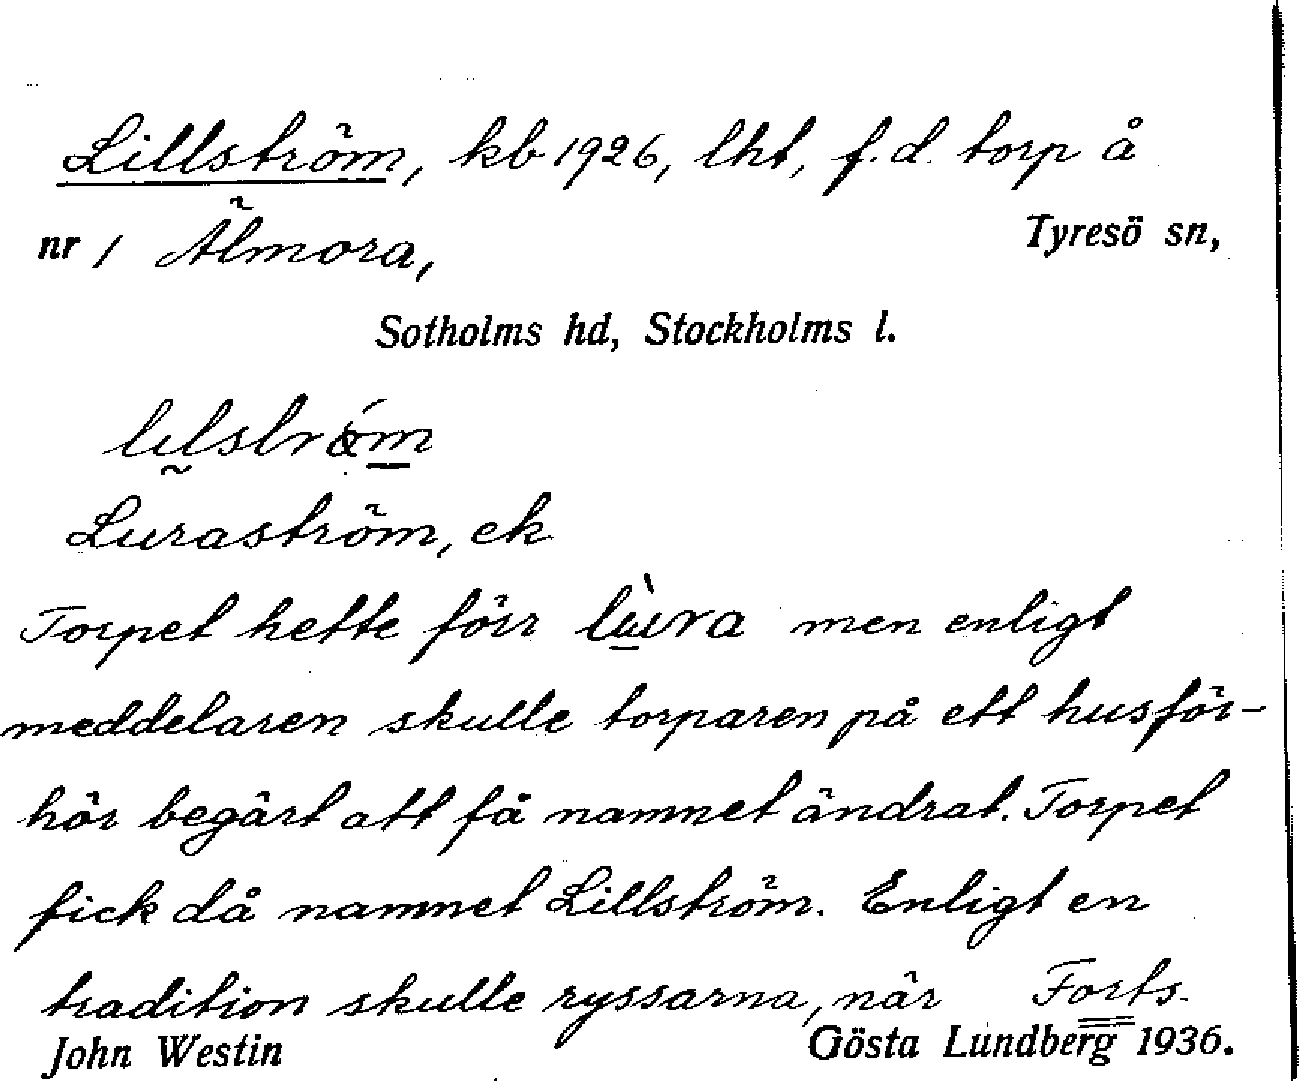 Lillström, kb 1926, lht, f.d. torp å
nr 1 Älmora, Tyresö sn,
Sotholms hd, Stockholms l.
Luraström, ek
Torpet hette förr lùra men enligt
meddelaren skulle torparen på ett husför-
hör begärt att få namnet ändrat. Torpet
fick då namnet Lillström. Enligt en
tradition skulle ryssarna, när Forts.
John Westin Gösta Lundberg 1936.